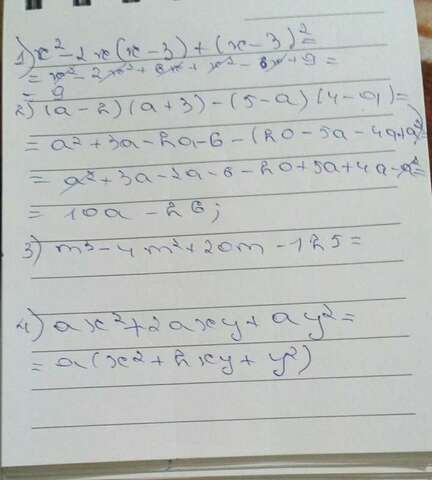 1) x² - 2x(x - 3) + (x - 3)² =
= x² - 2x² + 6x + x² - 6x + 9 =
= 9
2) (a - 2)(a + 3) - (5 - a)(4 - a) =
= a² + 3a - 2a - 6 - (20 - 5a - 4a + a²) =
= a² + 3a - 2a - 6 - 20 + 5a + 4a - a² =
= 10a - 26;
3) m³ - 4m² + 20m - 125 =
4) ax² + 2axy + ay² =
= a(x² + 2xy + y²)